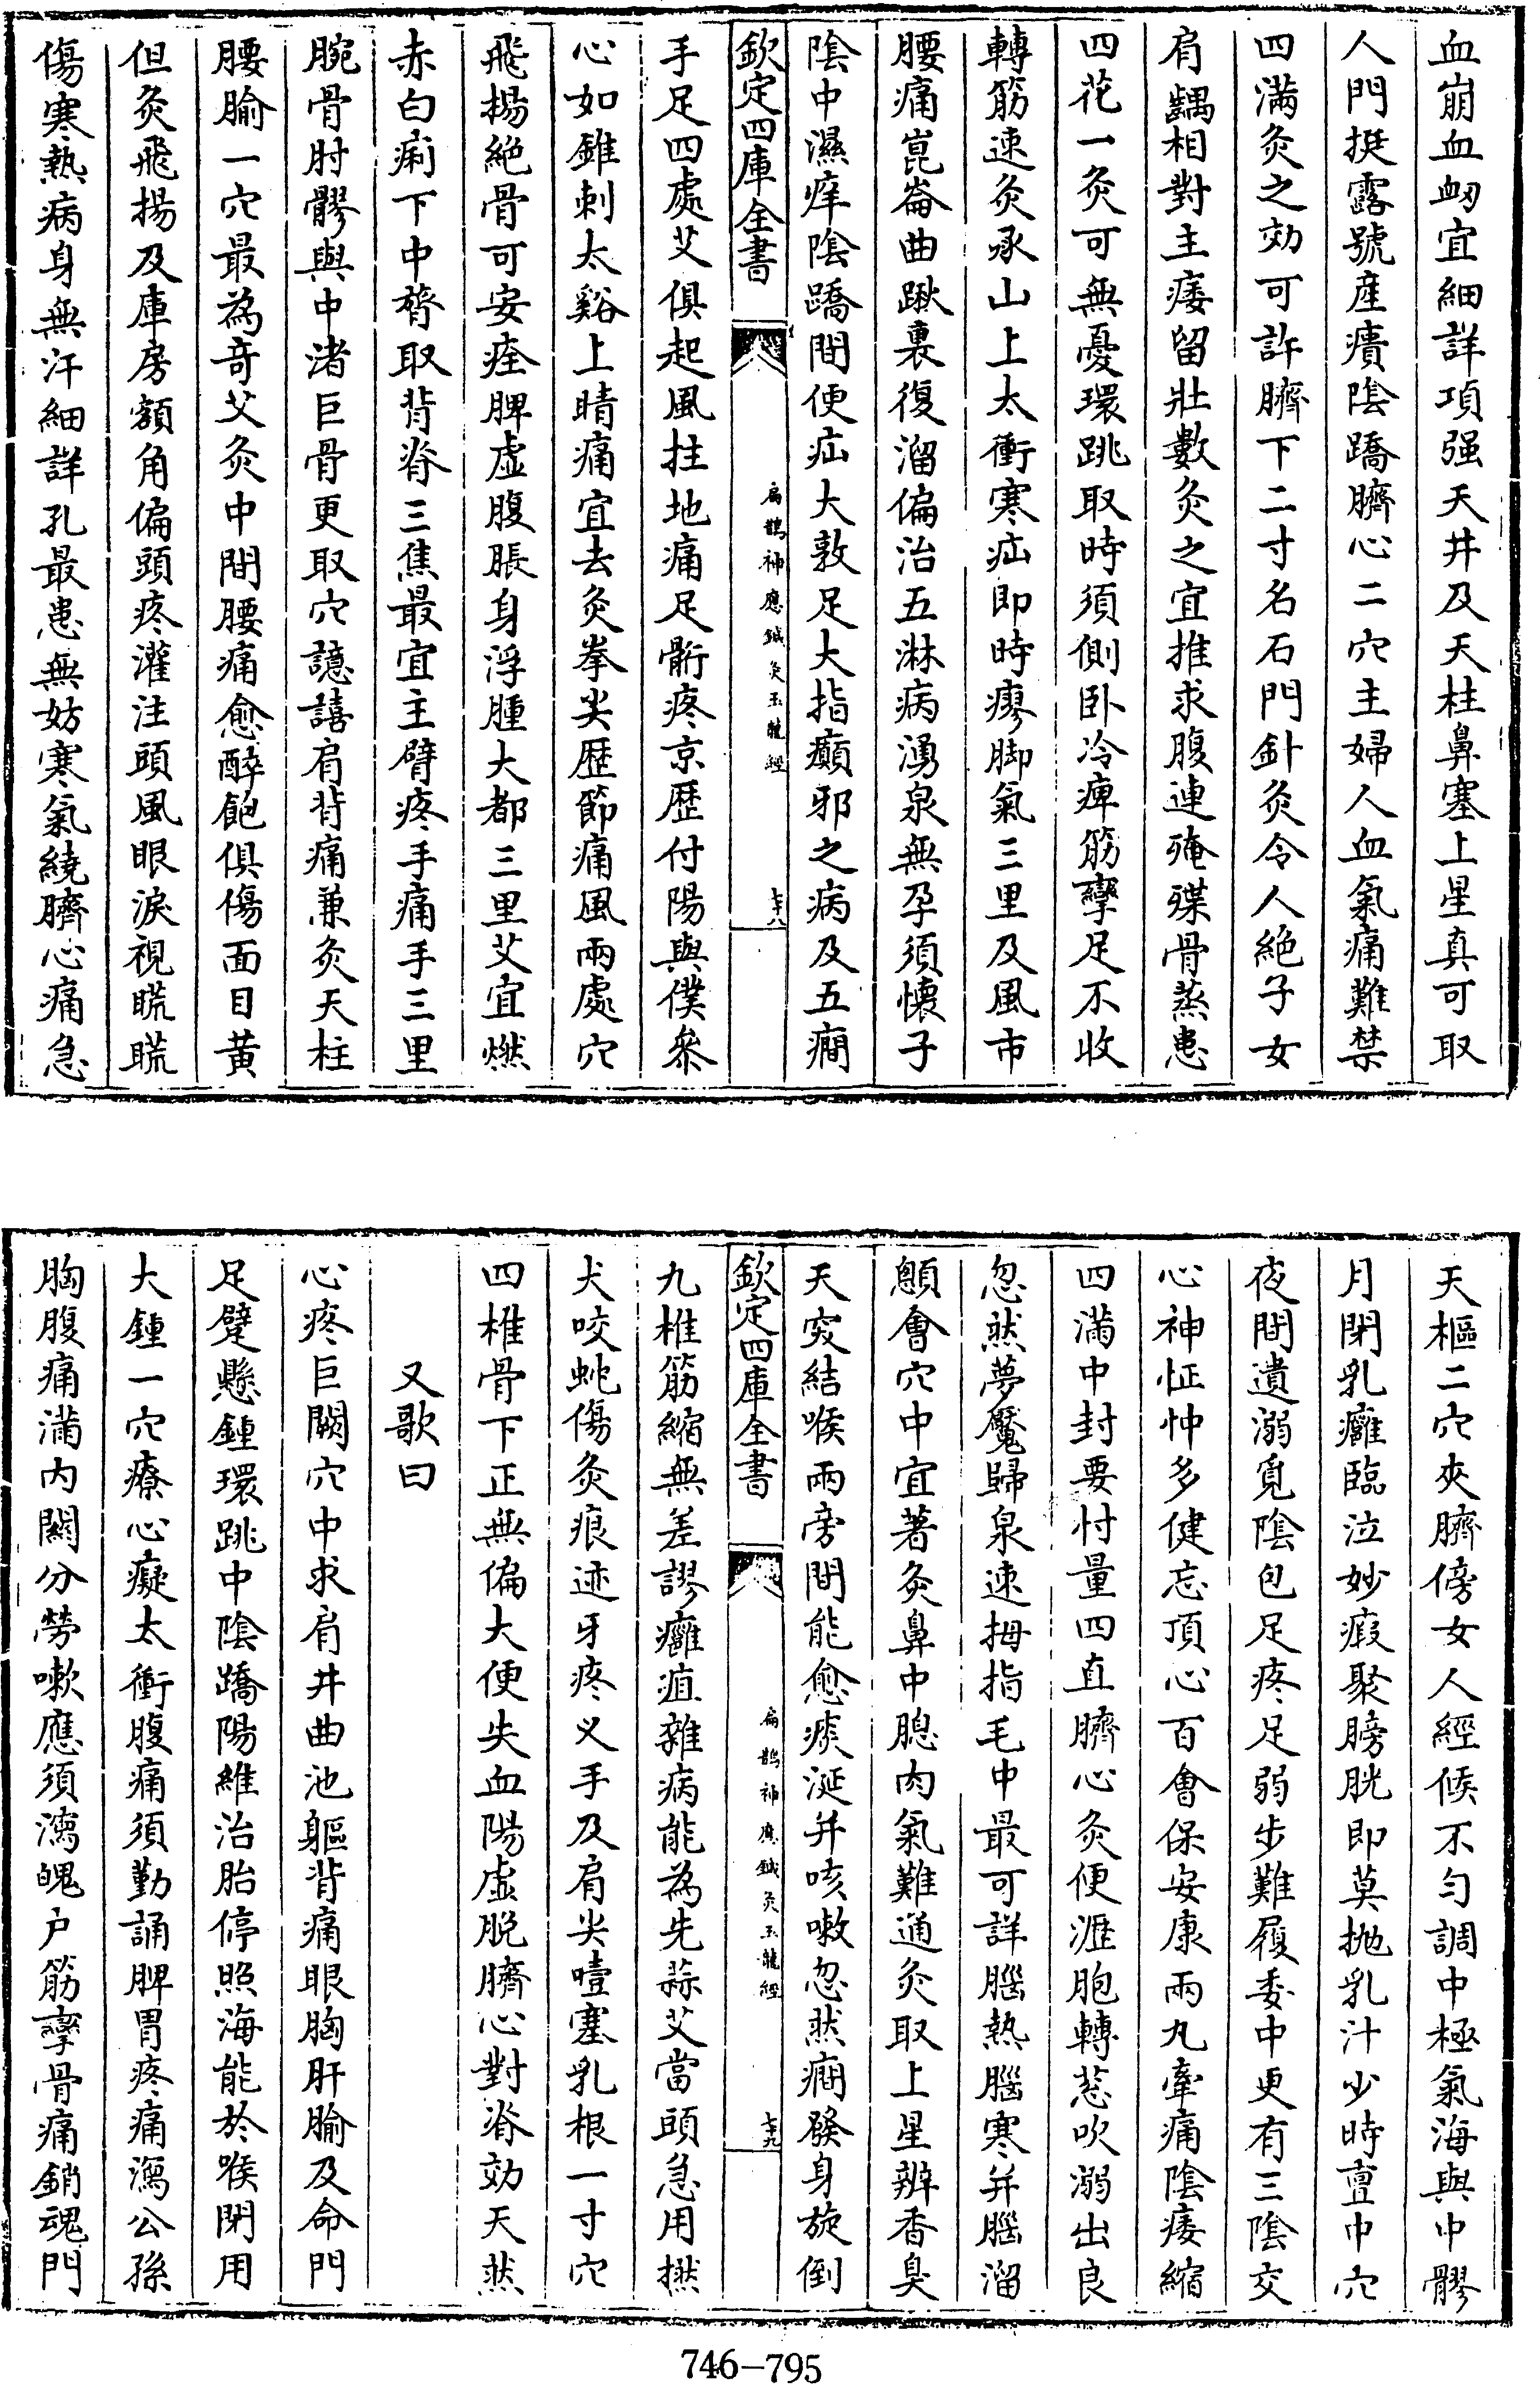 血崩血衂宜細詳項强天井及天柱鼻塞上星真可取
人門挺露號産㿉陰蹻臍心二穴主婦人血氣痛難禁
四滿灸之効可許臍下二寸名石門針灸令人絶子女
肩髃相對主痿留壯數灸之宜推求腹連殗殜骨蒸患
四花一灸可無憂環跳取時須側卧冷痺筋攣足不收
轉筋速灸承山上太衝寒疝即時瘳脚氣三里及風市
腰痛崑崙曲䐐裏復溜偏治五淋病湧泉無孕須懷子
陰中濕痒陰蹻間便疝大敦足大指癲邪之病及五癇
欽定四庫全書
扁鵲神應鍼灸玉龍經
七十八
手足四處艾俱起風拄地痛足䯒疼京歴付陽與僕參
心如錐刺太谿上睛痛宜去灸拳尖歴節痛風兩處穴
飛揚絶骨可安痊脾虛腹脹身浮腫大都三里艾宜燃
赤白痢下中膂取背脊三焦最宜主臂疼手痛手三里
腕骨肘髎與中渚巨骨更取穴譩譆肩背痛兼灸天柱
腰腧一穴最為奇艾灸中間腰痛愈醉飽俱傷面目黄
但灸飛揚及庫房額角偏頭疼灌注頭風眼淚視䀮䀮
傷寒熱病身無汗細詳孔最患無妨寒氣繞臍心痛急
天樞二穴夾臍傍女人經候不匀調中極氣海與中髎
月閉乳癰臨泣妙瘕聚膀胱即莫抛乳汁少時亶中穴
夜間遺溺覓陰包足疼足弱步難履委中更有三陰交
心神怔忡多健忘頂心百會保安康兩丸牽痛陰痿縮
四滿中封要忖量四直臍心灸便涯胞轉葱吹溺出良
忽然夢魘歸泉速拇指毛中最可詳腦熱腦寒并腦溜
顖會穴中宜著灸鼻中瘜肉氣難通灸取上星辨香臭
天突結喉兩旁間能愈痰涎并咳嗽忽然癇發身旋倒
欽定四庫全書
扁鵲神應鍼灸玉龍經
七十九
九椎筋縮無差謬癰疽雜病能為先蒜艾當頭急用撚
犬咬蛇傷灸痕迹牙疼义手及肩尖噎塞乳根一寸穴
四椎骨下正無偏大便失血陽虛脱臍心對脊効天然
又歌曰
心疼巨闕穴中求肩井曲池軀背痛眼胸肝腧及命門
足躄懸鍾環跳中陰蹻陽維治胎停照海能於喉閉用
大鍾一穴療心癡太衝腹痛須勤誦脾胃疼痛瀉公孫
胸腹痛滿内闗分勞嗽應須瀉魄户筋攣骨痛銷魂門
746-795